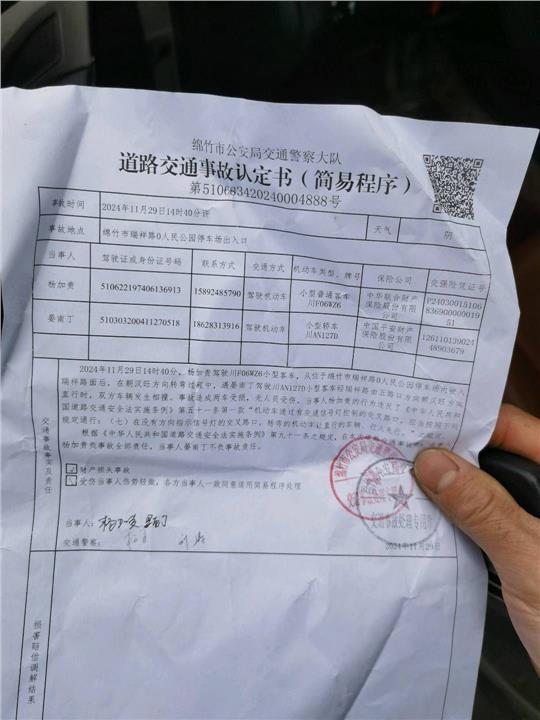 绵竹市公安局交通警察大队
道路交通事故认定书（简易程序）
第510683420240004888号
事故时间 2024年11月29日14时40分许 天气 阴
事故地点 绵竹市瑞祥路0人民公园停车场出入口
当事人 驾驶证或身份证号码 联系方式 交通方式 机动车类型、牌号 保险公司 交强险凭证号
杨加贵 510622197406136913 15892485790 驾驶机动车 小型普通客车 川F06WZ6 中华联合财产保险股份有限公司 P24030015106836900000001951
晏南丁 510303200411270518 18628313916 驾驶机动车 小型轿车 川AN127D 中国平安财产保险股份有限公司 12611013902448903679
交通事故事实及责任
2024年11月29日14时40分，杨加贵驾驶川F06WZ6小型客车，从位于绵竹市瑞祥路0人民公园停车场内驶入
瑞祥路面后，在朝汉旺方向转弯过程中，遇晏南丁驾驶川AN127D小型客车经瑞祥路由五路口方向朝汉旺方向
直行时，双方车辆发生碰撞，事故造成两车受损，无人员受伤。当事人杨加贵的行为违反了《中华人民共和
国道路交通安全法实施条例》第五十一条第一款“机动车通过有交通信号灯控制的交叉路口，应当按照下列
规定通行：（七）在没有方向指示信号灯的交叉路口，转弯的机动车让直行的车辆、行人先行。
根据《中华人民共和国道路交通安全法实施条例》第九十一条之规定，
杨加贵负事故全部责任，当事人晏南丁不负事故责任。
财产损失事故
受伤当事人伤势轻微，各方当事人一致同意适用简易程序处理
当事人：
交通警察：
交通事故处理专用章
2024年11月29日
损害赔偿调解结果